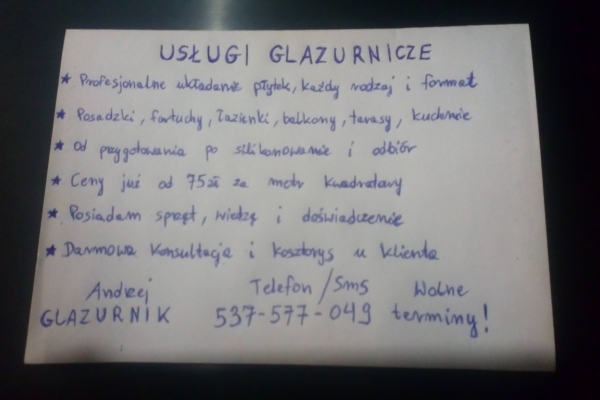 USŁUGI GLAZURNICZE
★ Profesjonalne układanie płytek, każdy rodzaj i format
★ Posadzki, fartuchy, łazienki, balkony, tarasy, kuchnie
★ Od przygotowania po silikonowanie i odbiór
★ Ceny już od 75zł za metr kwadratowy
★ Posiadam sprzęt, wiedzę i doświadczenie
★ Darmowa konsultacja i kosztorys u klienta
Andrzej Telefon/Sms Wolne
GLAZURNIK 537-577-049 terminy!